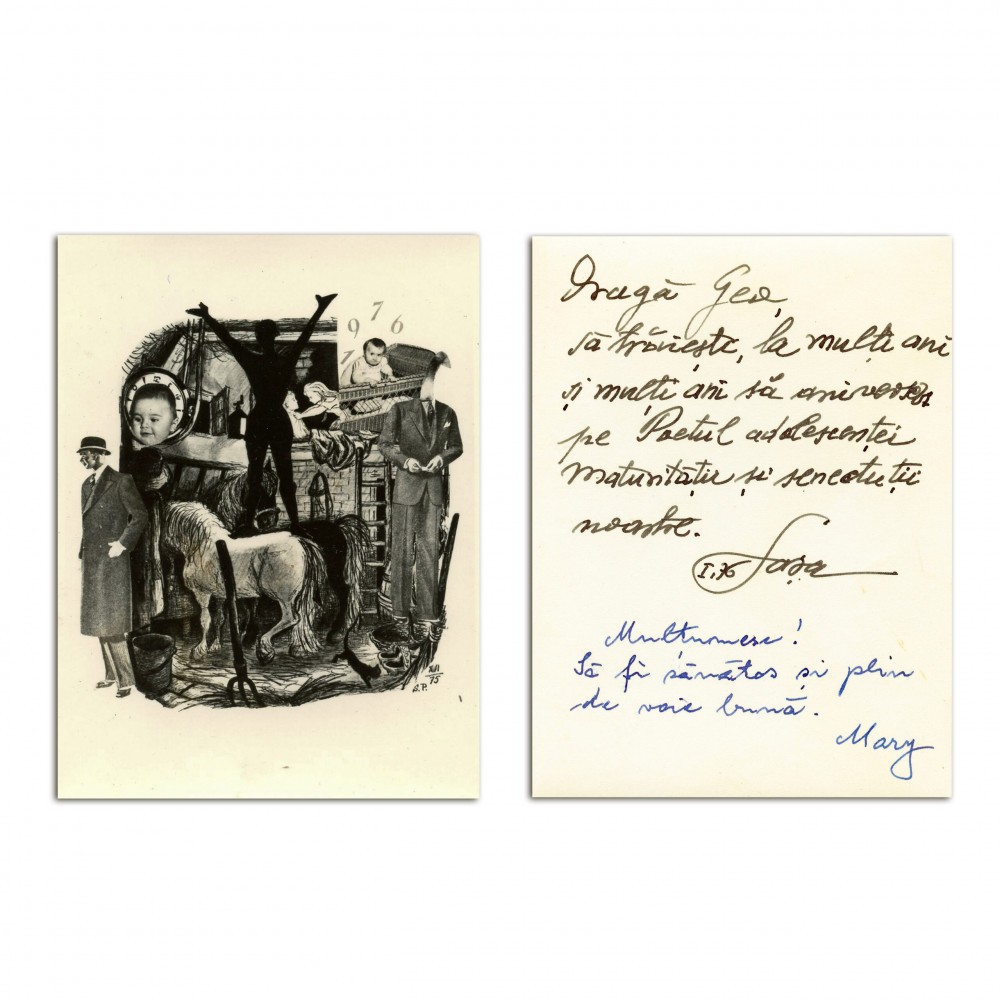 1976
XII
75
S.P.
Dragă Geo,
să trăiești, la mulți ani
și mulți ani să aniversezi
pe Poetul adolescenței
maturității și senectuții
noastre.
I.76 Sașa
Mulțumesc!
Să fi sănătos și plin
de voie bună.
Mary